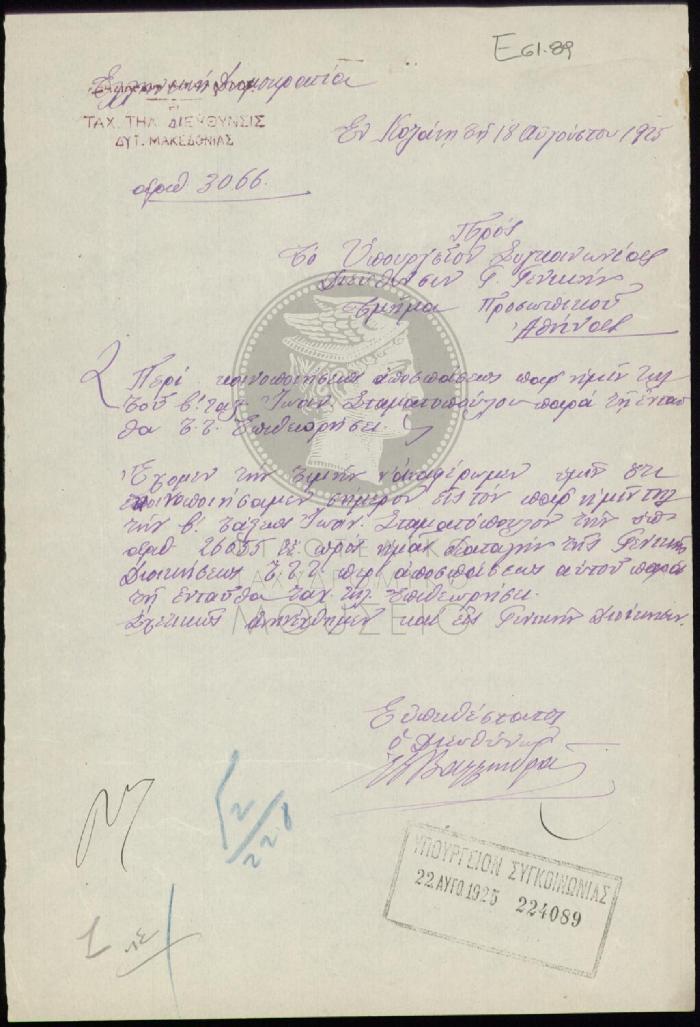 Ε 61.89
Ελληνική Δημοκρατία
ΤΑΧ. ΤΗΛ. ΔΙΕΥΘΥΝΣΙΣ
ΔΥΤ. ΜΑΚΕΔΟΝΙΑΣ
Εν Κοζάνη τη 18 Αυγούστου 1925
αριθ 3066.
Προς
Το Υπουργείον Συγκοινωνίας
Διεύθυνσιν Γενικήν
Τμήμα Προσωπικού
Αθήνας
Περί κοινοποιήσεως αποσπάσεως παρ' ημίν τηλ
του β' ταξ. Ιωαν. Σταματοπούλου παρά τη ένταυ
θα Τ.Τ. Επιθεωρήσει.
Έχομεν την τιμήν ν' αναφέρωμεν υμίν ότι
εκοινοποιήσαμεν σήμερον εις τον παρ' ημίν τηλ
την β' τάξεως Ιωαν. Σταματόπουλον την υπ'
αριθ προς ημάς διαταγήν της Γενικής
Διοικήσεως Τ.Τ.Τ περί αποσπάσεως αυτού παρά
τη ενταύθα ταχ. τηλ. Επιθεωρήσει.
Σχετικώς και εις Γενικήν Διοίκησιν.
Ευπειθέστατος
ο Διευθυντής
2/22.8
ΜΟΥΣΕΙΟ
ΥΠΟΥΡΓΕΙΟΝ ΣΥΓΚΟΙΝΩΝΙΑΣ
22 ΑΥΓΟ.1925 224089